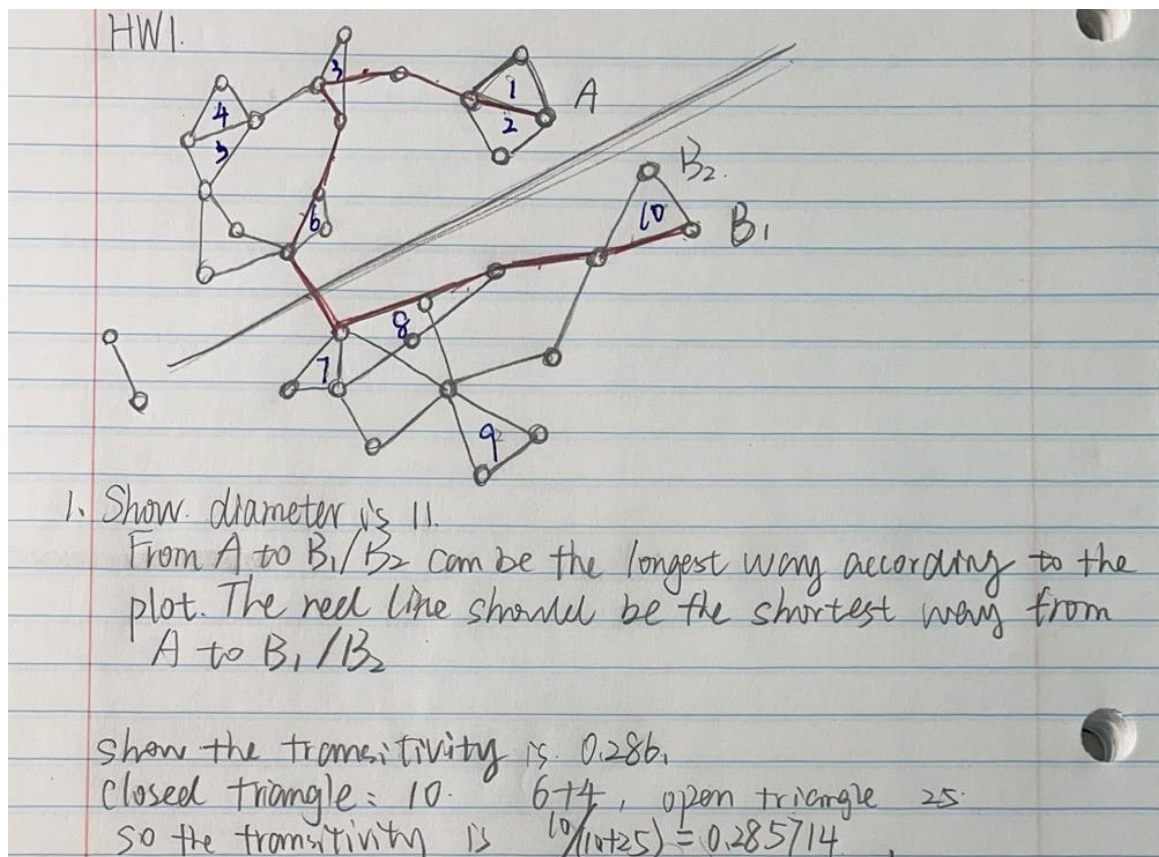 HW1.
3
4
1
A
2
3
B2.
6
10
B1
8
7
9
1. Show diameter is 11.
From A to B1/B2 can be the longest way according to the
plot. The red line should be the shortest way from
A to B1/B2
show the transitivity is 0.286.
closed triangle: 10. 6+4, open triangle 25.
so the transitivity is 10/(10+25) = 0.285714